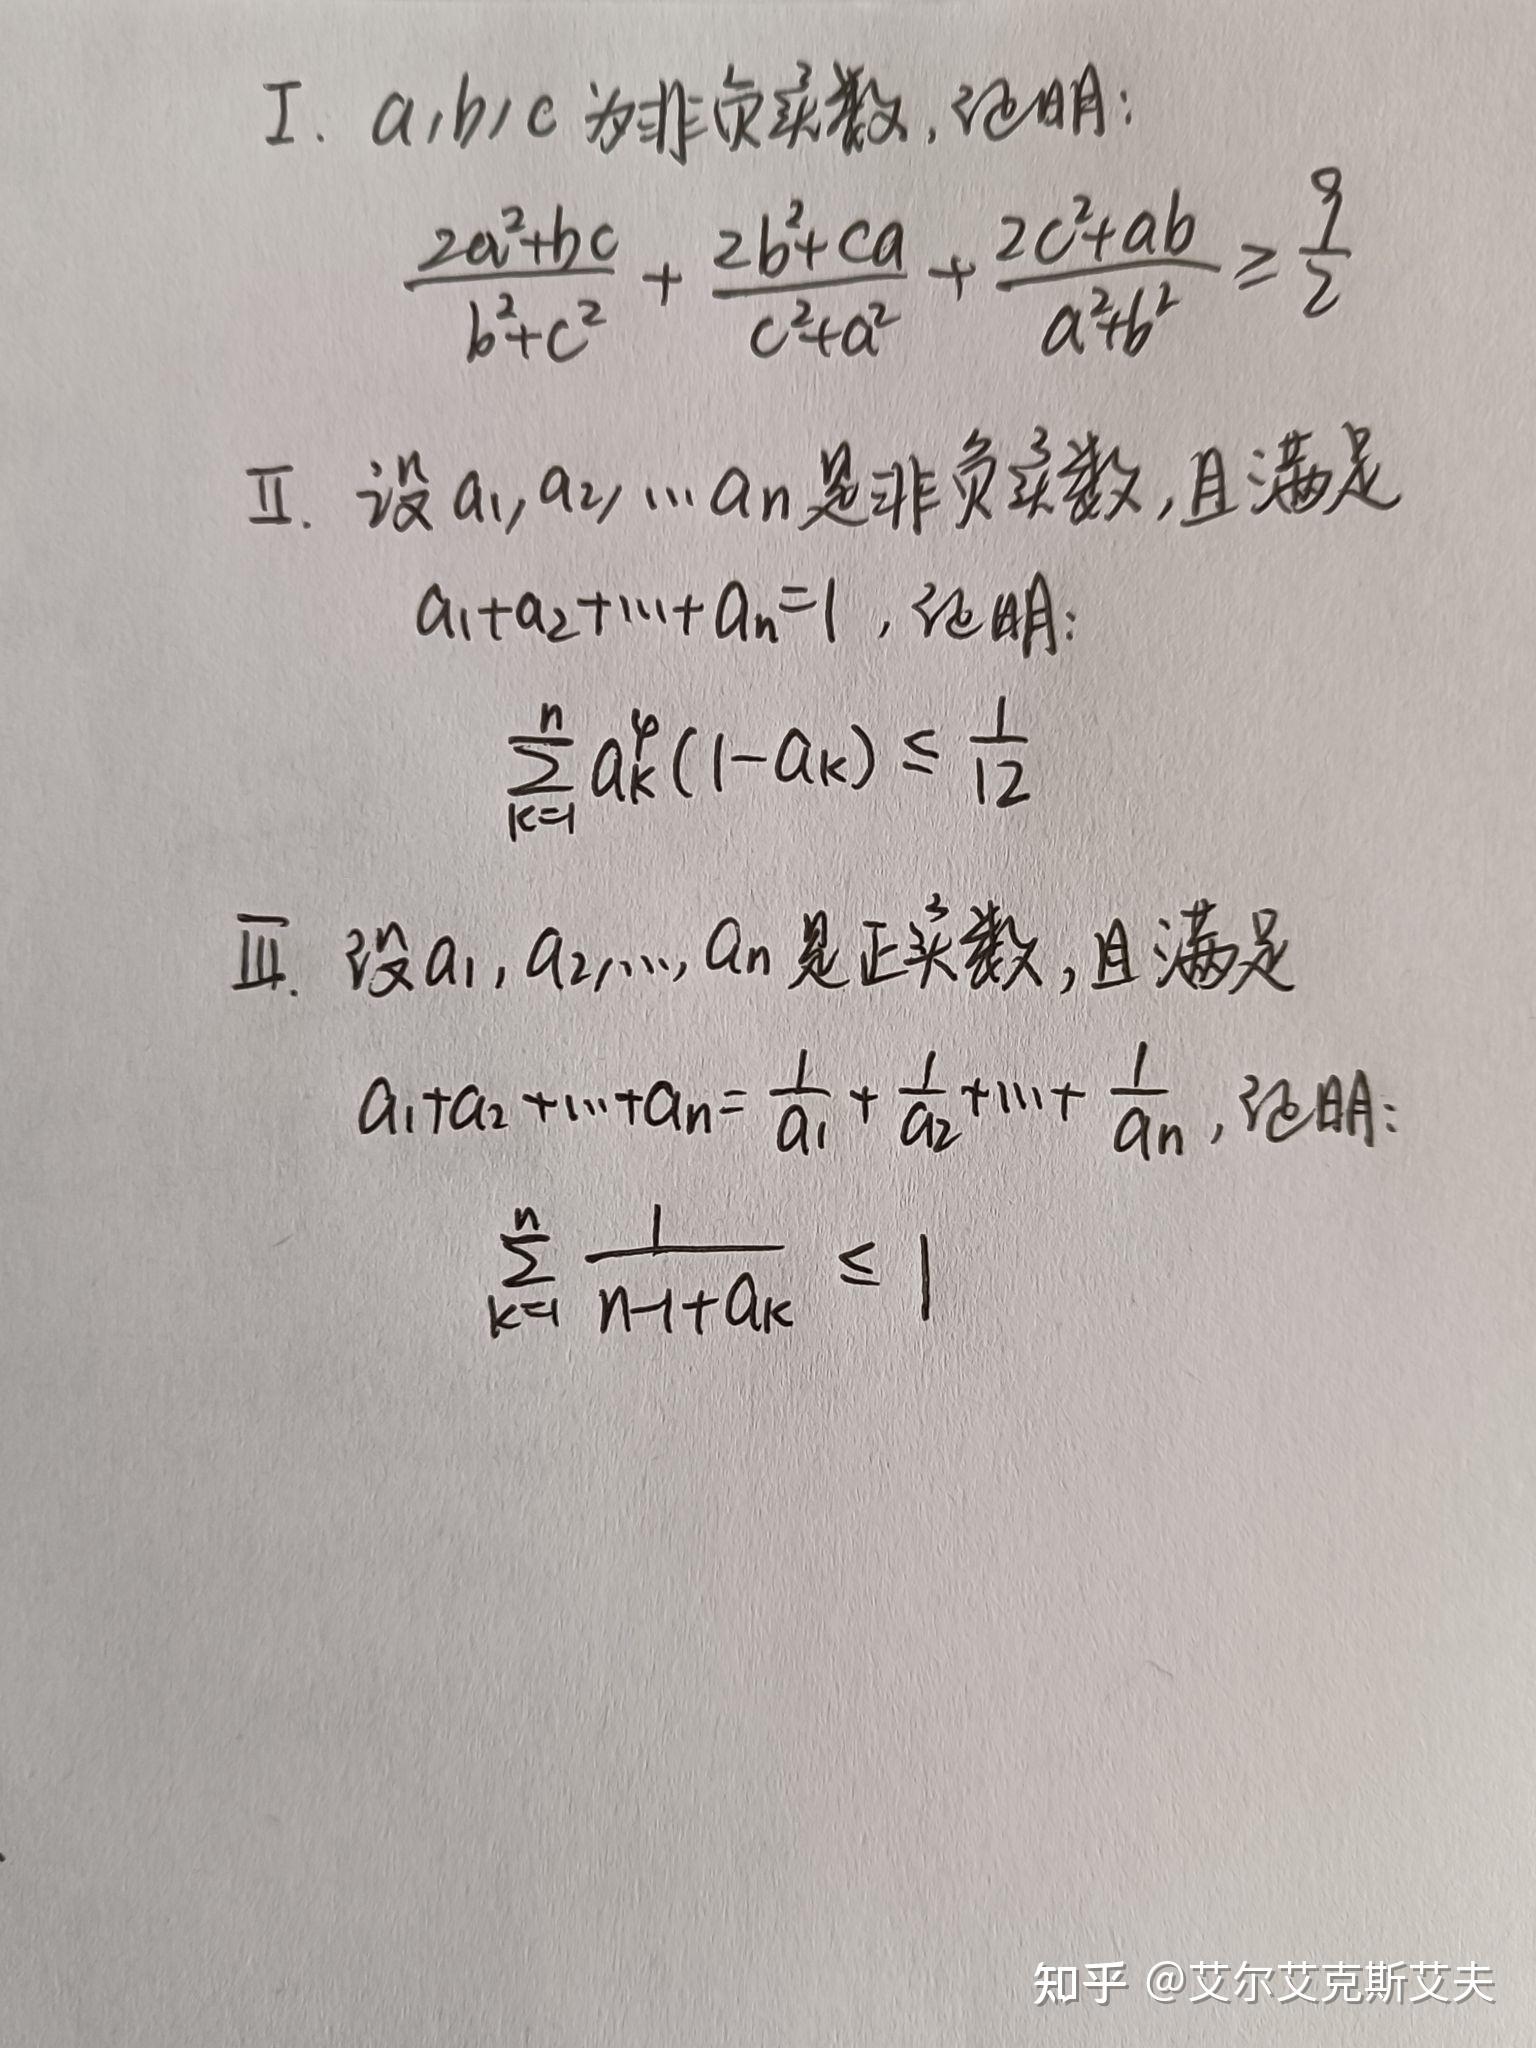 I. a,b,c为非负实数,证明:
(2a²+bc)/(b²+c²) + (2b²+ca)/(c²+a²) + (2c²+ab)/(a²+b²) ≥ 9/2
II. 设a₁,a₂,…aₙ是非负实数,且满足
a₁+a₂+…+aₙ=1,证明:
∑ₖ₌₁ⁿ aₖ⁴(1-aₖ) ≤ 1/12
III. 设a₁,a₂,…,aₙ是正实数,且满足
a₁+a₂+…+aₙ= 1/a₁ + 1/a₂ +…+ 1/aₙ,证明:
∑ₖ₌₁ⁿ 1/(n-1+aₖ) ≤ 1
知乎 @艾尔艾克斯艾夫